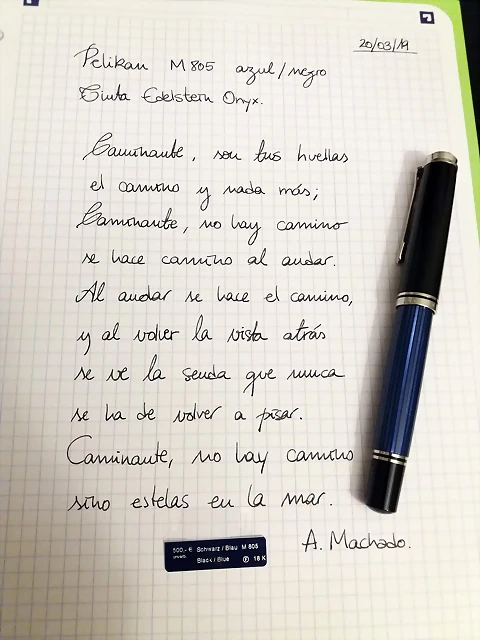 20/03/19
Pelikan M 805 azul/negro
Tinta Edelstein Onyx.
Caminante, son tus huellas
el camino y nada más;
Caminante, no hay camino
se hace camino al andar.
Al andar se hace el camino,
y al volver la vista atrás
se ve la senda que nunca
se ha de volver a pisar.
Caminante, no hay camino
sino estelas en la mar.
A. Machado.
500,- € Schwarz / Blau M 805
Black / Blue F 18 K